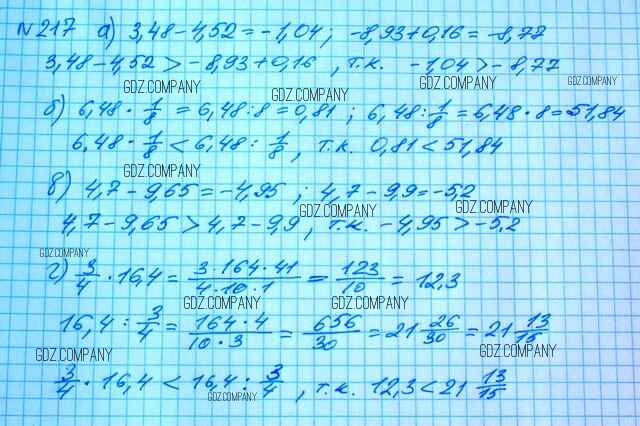 №217 а) 3,48-4,52=-1,04; -8,93+0,16=-8,77
3,48-4,52>-8,93+0,16, т.к. -1,04>-8,77
GDZ.COMPANY GDZ.COMPANY GDZ.COMPANY GDZ.COMPANY
б) 6,48·1/8=6,48:8=0,81; 6,48:1/8=6,48·8=51,84
GDZ.COMPANY GDZ.COMPANY
6,48·1/8<6,48:1/8, т.к. 0,81<51,84
GDZ.COMPANY
в) 4,7-9,65=-4,95; 4,7-9,9=-5,2
GDZ.COMPANY GDZ.COMPANY
4,7-9,65>4,7-9,9, т.к. -4,95>-5,2
GDZ.COMPANY
г) 3/4·16,4=3·164·41/4·10·1=123/10=12,3
GDZ.COMPANY GDZ.COMPANY
16,4:3/4=164·4/10·3=656/30=21 26/30=21 13/15
GDZ.COMPANY GDZ.COMPANY
3/4·16,4<16,4:3/4, т.к. 12,3<21 13/15
GDZ.COMPANY